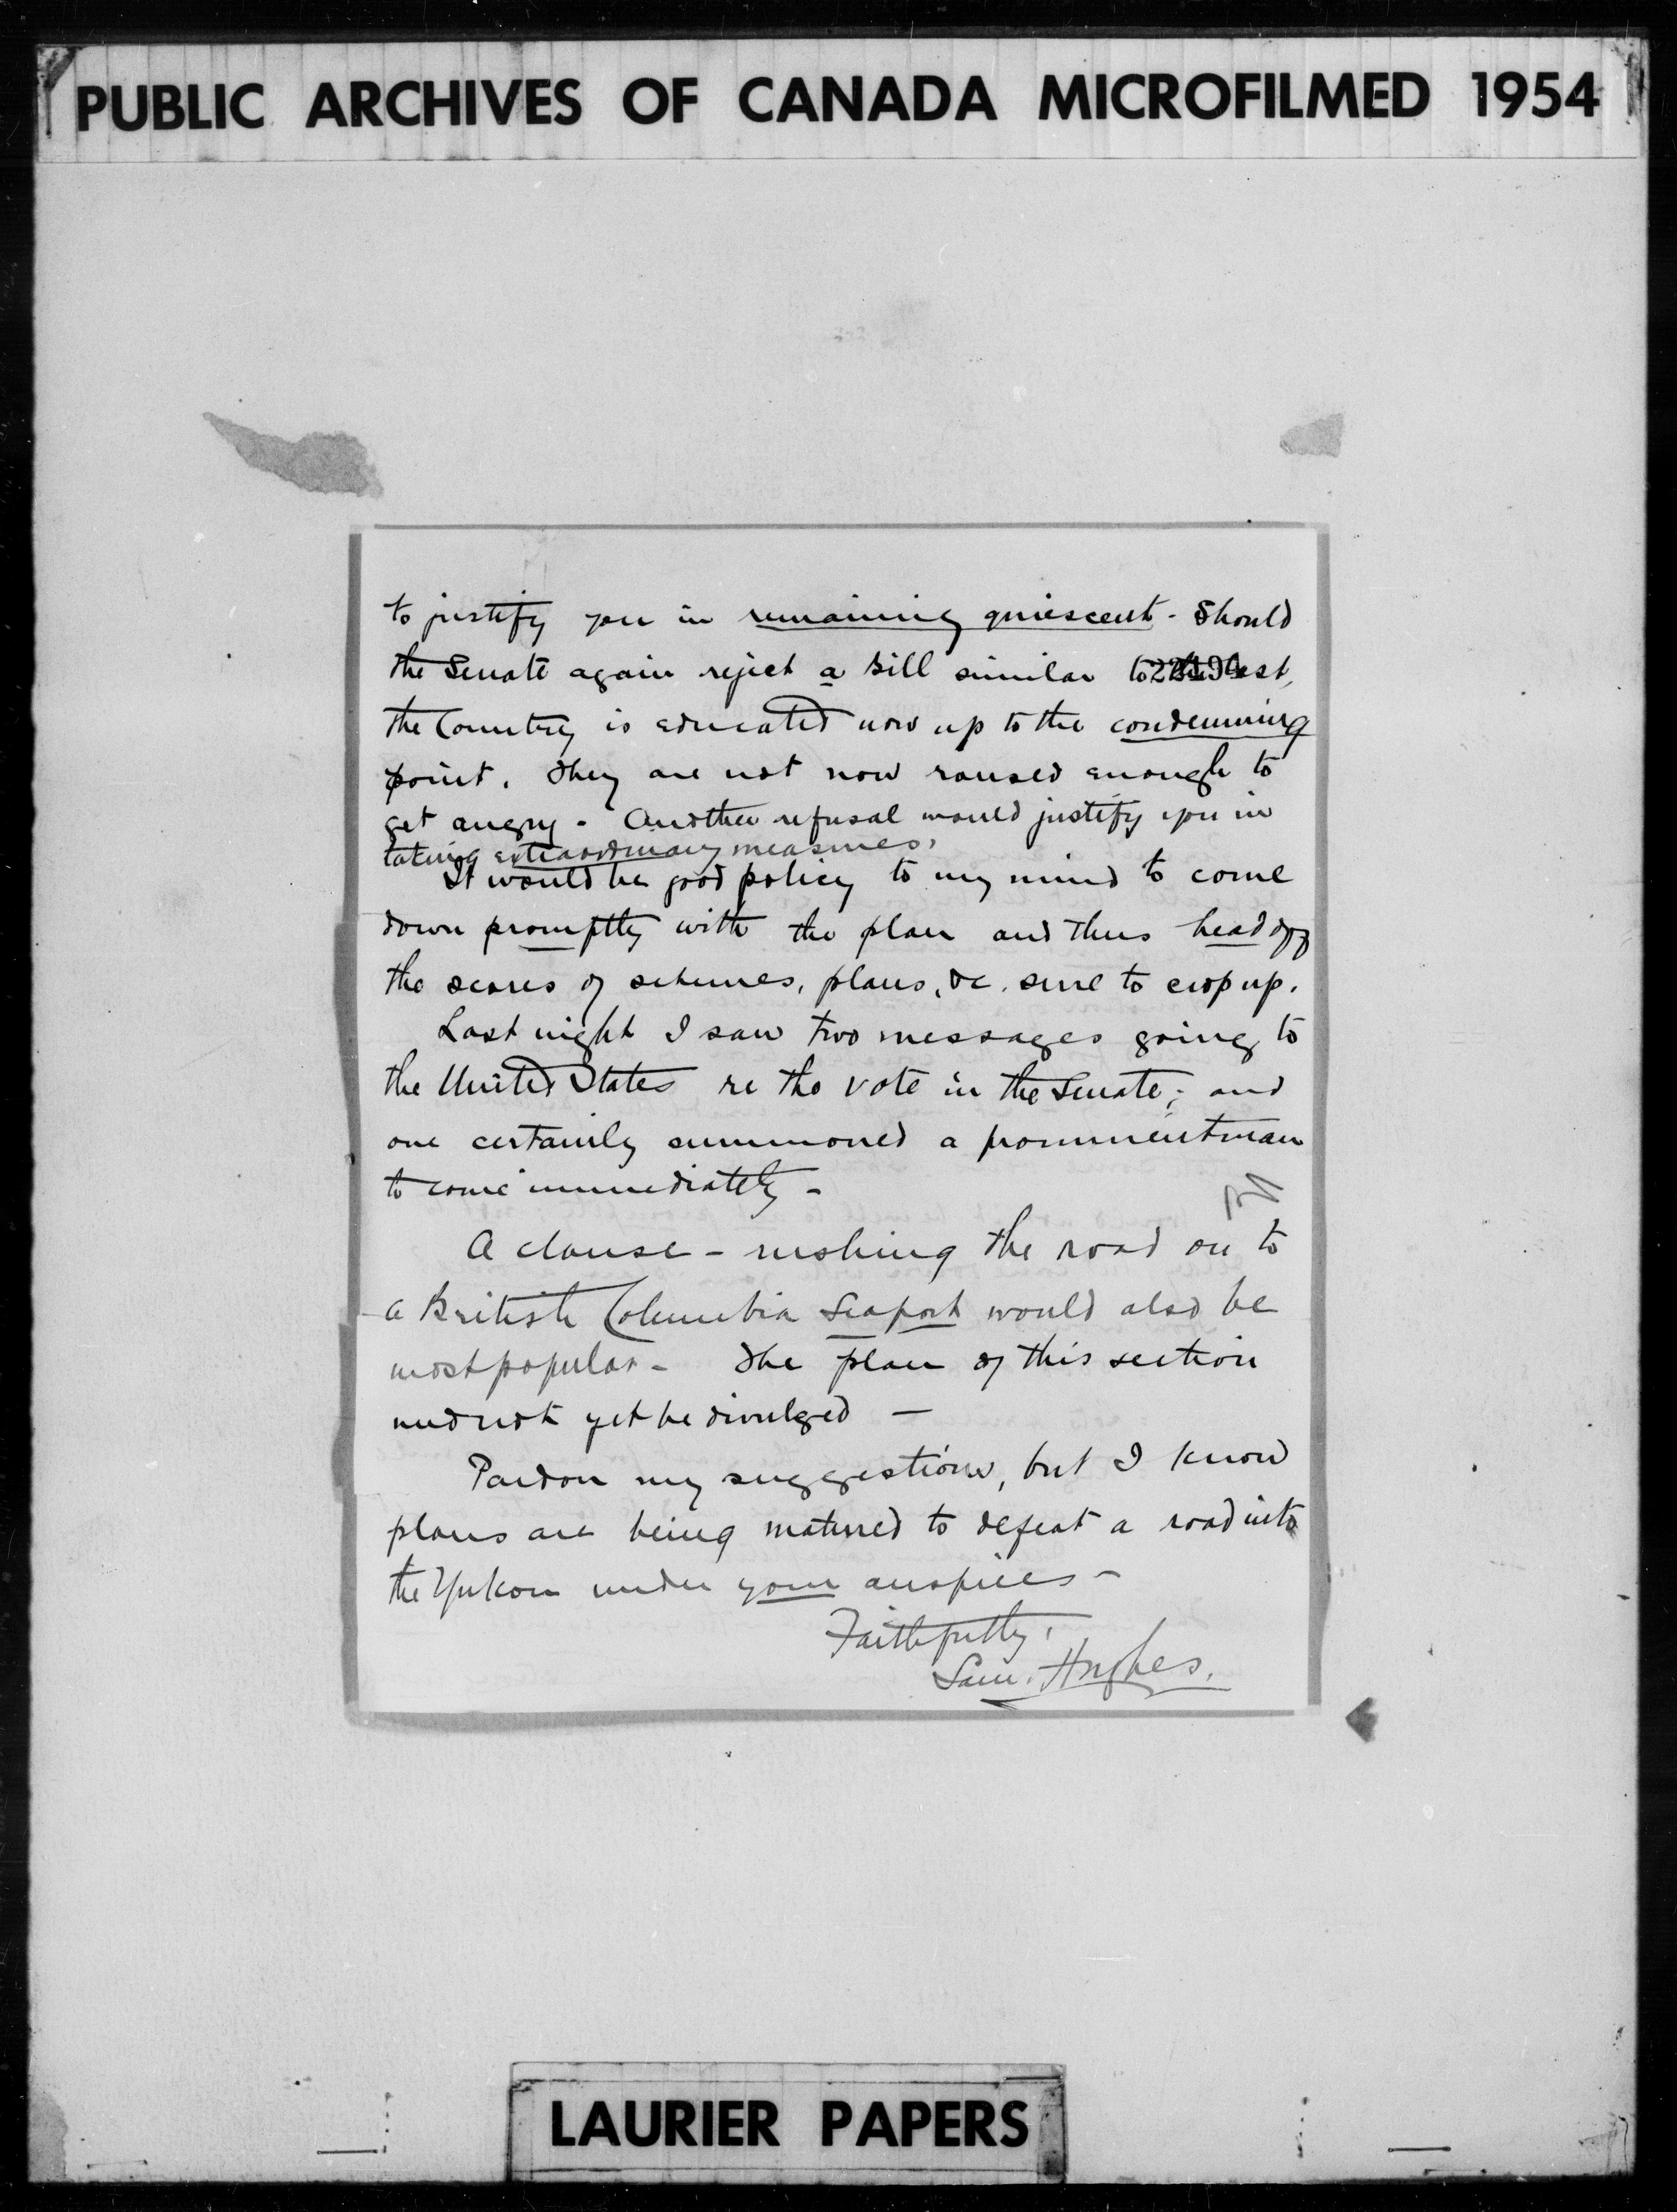 PUBLIC ARCHIVES OF CANADA MICROFILMED 1954
to justify you in remaining quiescent - Should
the Senate again reject a Bill similar to the last,
the Country is educated now up to the condemning
point. They are not now roused enough to
get angry - Another refusal would justify you in
taking extraordinary measures.
It would be good policy to my mind to come
down promptly with the plan and thus head off
the scores of schemes, plans, &c. sure to crop up.
Last night I saw two messages going to
the United States re the vote in the Senate; and
one certainly summoned a prominent man
to come immediately -
A clause - rushing the road on to
a British Columbia Seaport would also be
most popular - The plan of this section
need not yet be divulged -
Pardon my suggestions, but I know
plans are being matured to defeat a road into
the Yukon under your auspices -
Faithfully,
Sam. Hughes.
LAURIER PAPERS